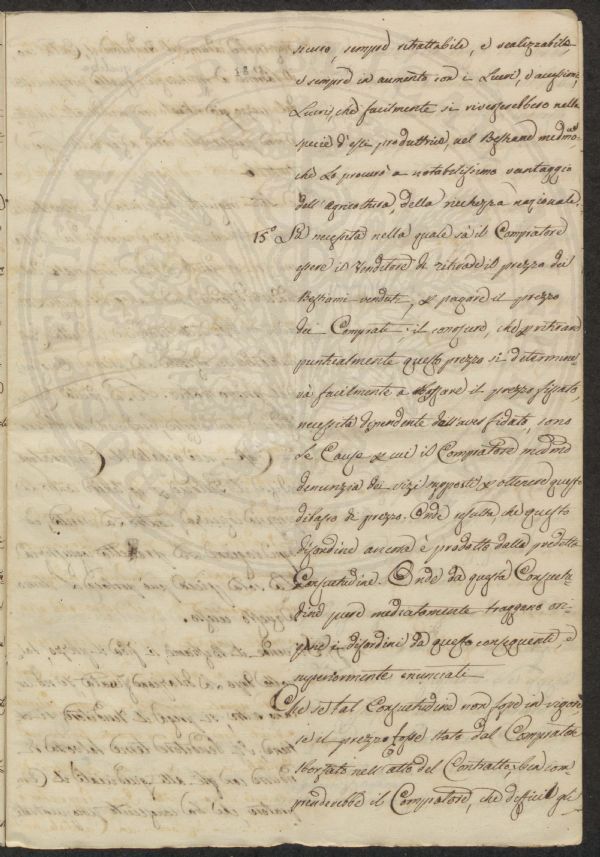 sicuro, sempre ritrattabile, e realizzabile
e sempre in aumento con i Lucri, e accessioni,
Lucri, che facilmente si riverserebbero nella
specie d'essi produttrice, nel Bestiame medmo
che Lo procurò a notabilissimo vantaggio
dell'Agricoltura, della ricchezza nazionale.
15.° La necessità nella quale sà il Compratore
essere il Venditore di ritirare il prezzo dei
Bestiami venduti, pagare il prezzo
dei Comprati; il conoscere, che ritirare
puntualmente questo prezzo si determine
rà facilmente a il prezzo fissato,
necessità dipendente dall'aver fidato, sono
Le Cause cui il Compratore medmo
denunzia dei vizj opposti ottenere questo
di prezzo. Onde risulta che questo
disordine ancora è prodotto dalla predetta
Consuetudine. Onde da questa Consuetu
dine pure mediatamente traggono ori-
gine i disordini da questo conseguenti, e
superiormente enunciati
Che se tal Consuetudine non fosse in vigore,
se il prezzo fosse stato dal Compratore
sborzato nell'atto del Contratto, ben com-
prenderebbe il Compratore, che difficil gli